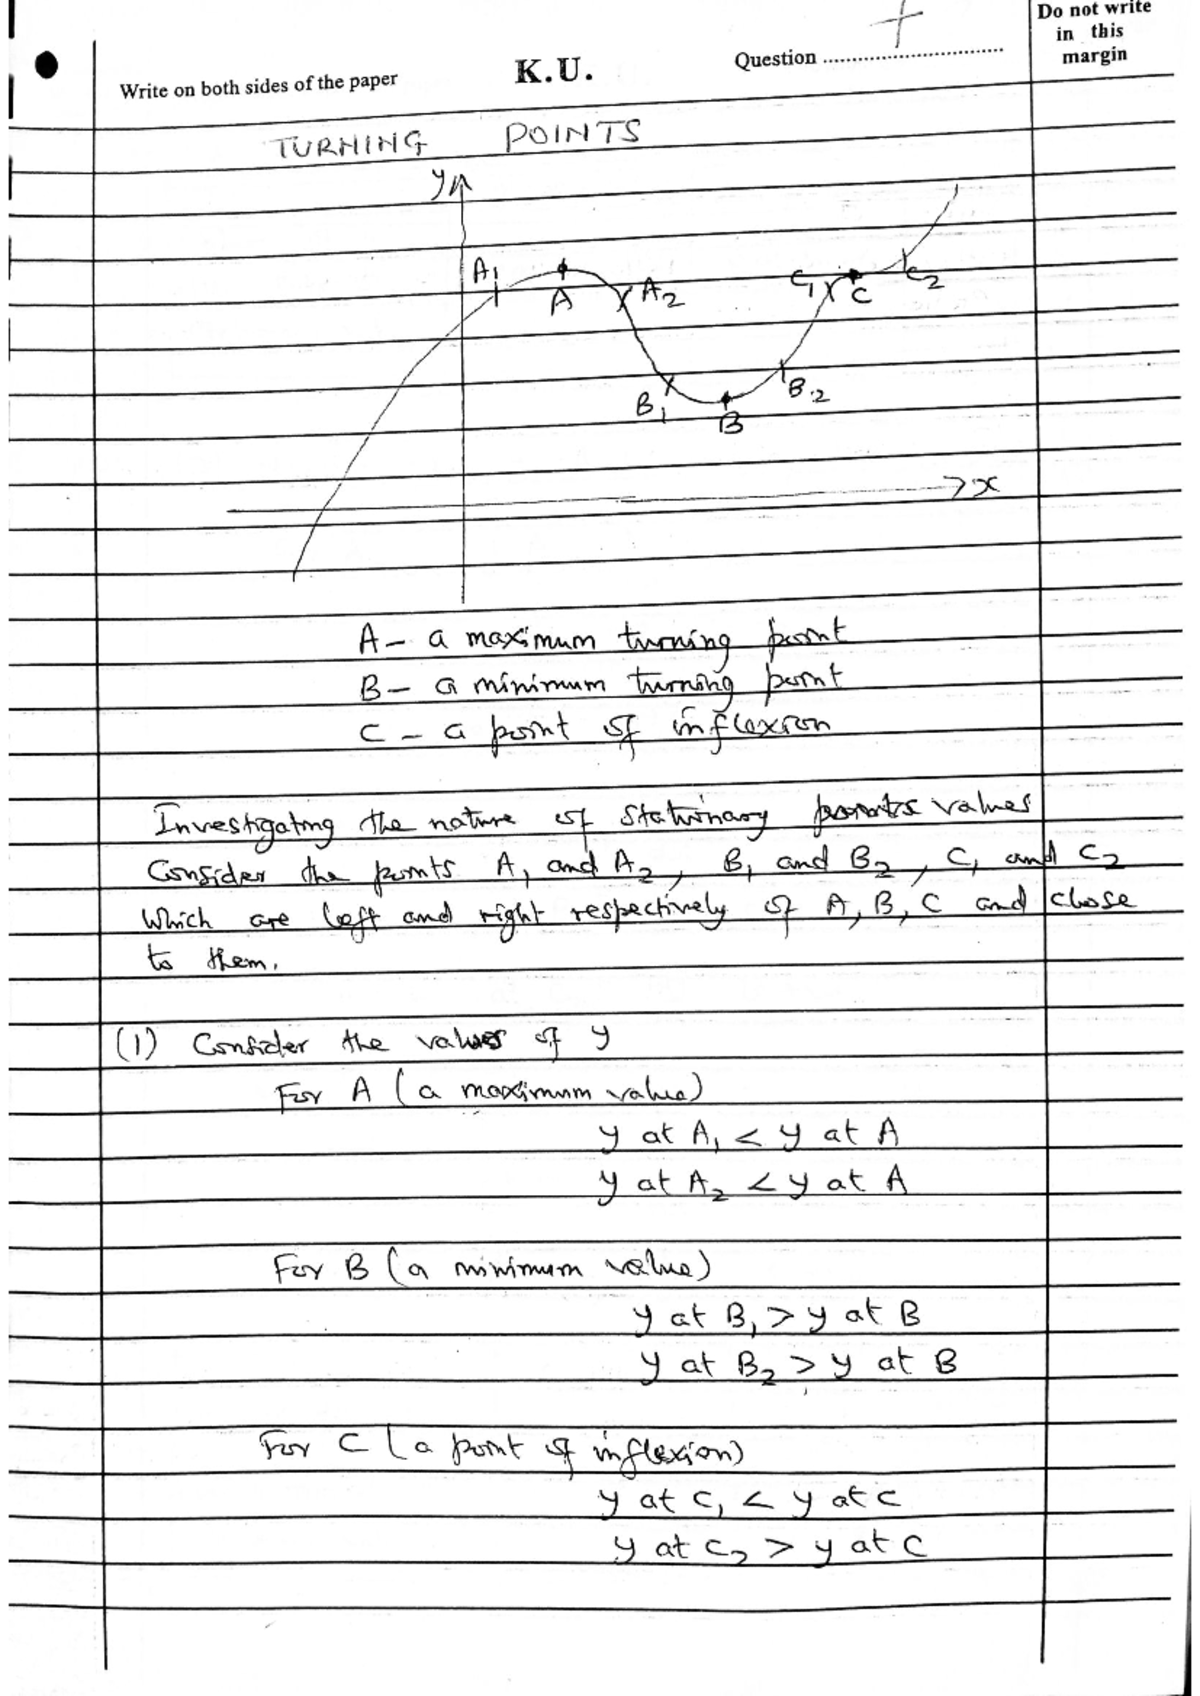 Do not write
in this
margin
Write on both sides of the paper
K.U.
Question ................................
TURNING POINTS
y
A1
A
A2
C1
C
C2
B1
B
B2
x
A – a maximum turning point
B – a minimum turning point
C – a point of inflexion
Investigating the nature of stationary values
Consider the points A1 and A2, B1 and B2, C1 and C2
which are left and right respectively of A, B, C and close
to them.
(1) Consider the values of y
For A (a maximum value)
y at A1 < y at A
y at A2 < y at A
For B (a minimum value)
y at B1 > y at B
y at B2 > y at B
For C (a point of inflexion)
y at C1 < y at C
y at C2 > y at C